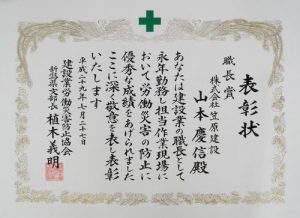 表彰状
職長賞
株式会社笠原建設
山本慶信殿
あなたは建設業の職長として
永年勤務し担当作業現場に
おいて労働災害の防止に
優秀な成績をあげられました
ここに深く敬意を表し表彰
いたします
平成二十九年七月二十七日
建設業労働災害防止協会
新潟県支部長 植木義明